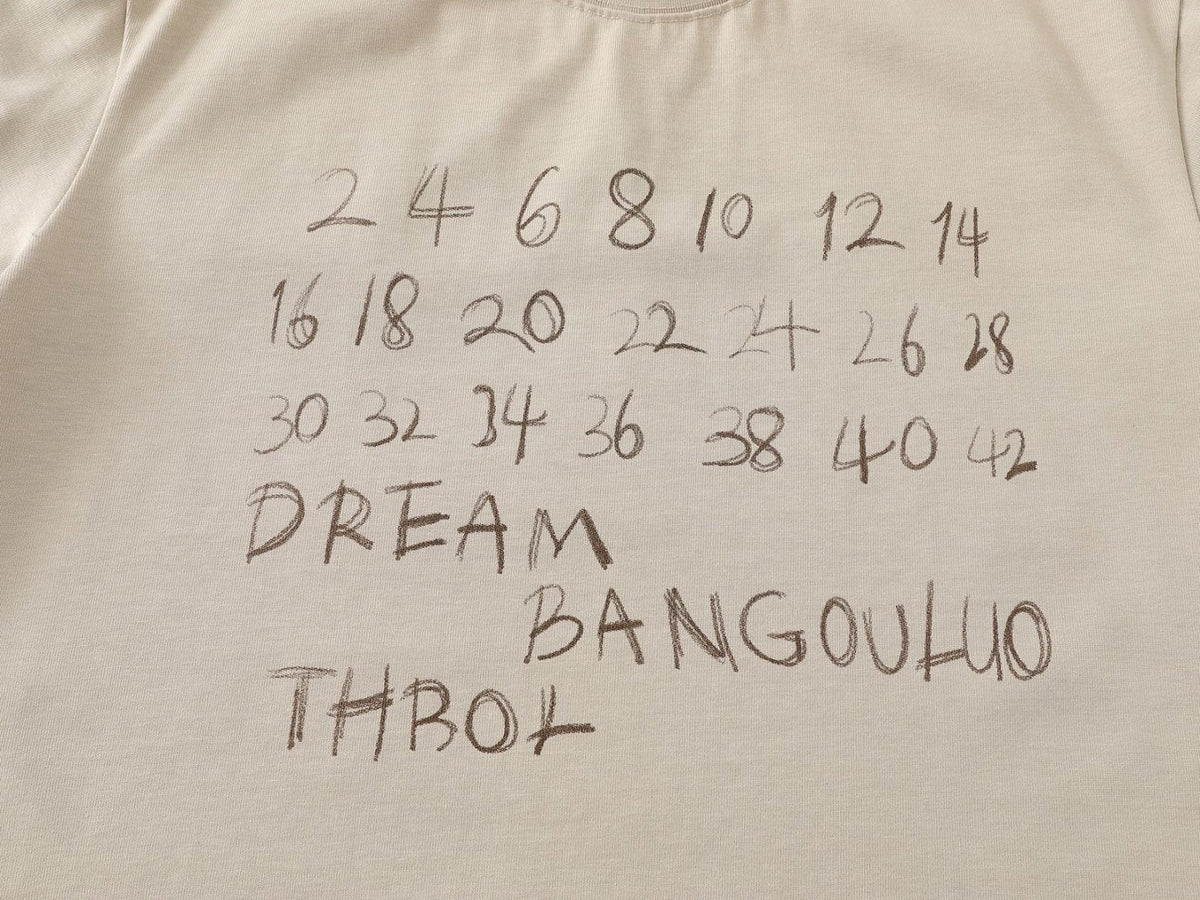 2 4 6 8 10 12 14
16 18 20 22 24 26 28
30 32 34 36 38 40 42
DREAM
BANGOULUO
THBOL